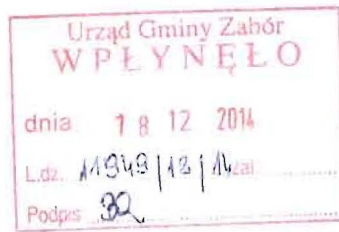 Urząd Gminy Zabór
WPŁYNĘŁO
dnia 18 12 2014
L.dz. 11949/12/14 zał.
Podpis